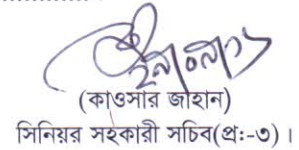 (কাওসার জাহান)
সিনিয়র সহকারী সচিব(প্রঃ-৩)।